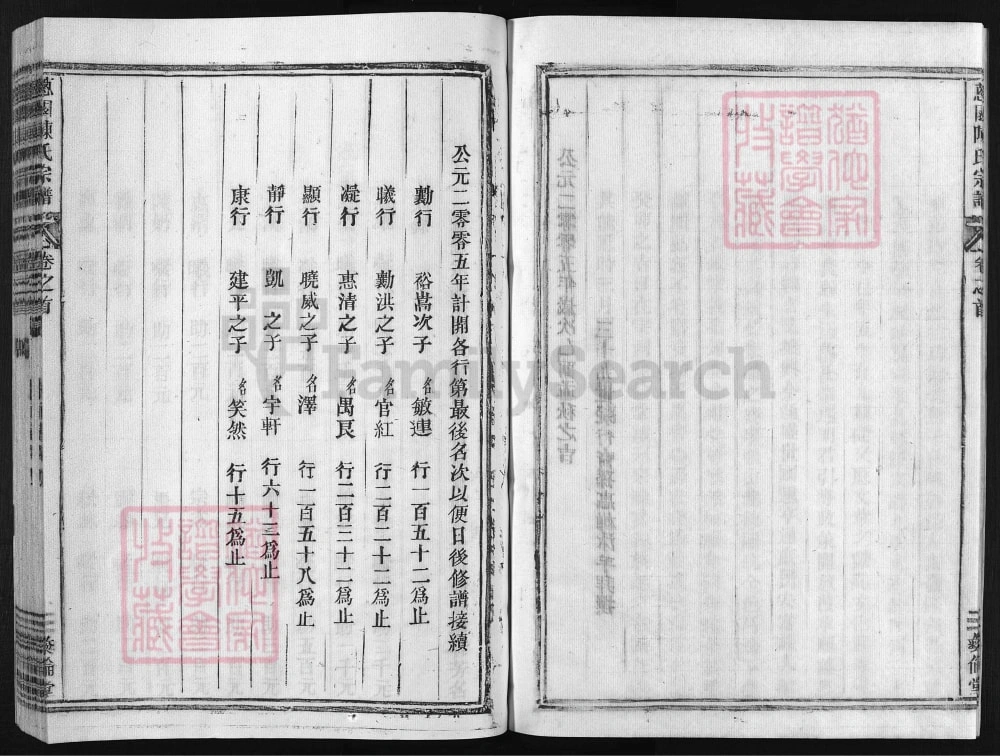 陳氏宗譜
卷之首
彝倫堂
猶他家譜學會收藏
公元二零零五年計開各行第最後名次以便日後修譜接續
勳行 裕嵩次子 名敏連 行一百五十二爲止
曦行 勳洪之子 名官紅 行二百二十二爲止
凝行 惠清之子 名禺良 行二百三十二爲止
顯行 曉威之子 名澤 行一百五十八爲止
靜行 凱之子 名宇軒 行六十三爲止
康行 建平之子 名笑然 行十五爲止
陳氏宗譜
卷之首
彝倫堂
猶他家譜學會收藏
FamilySearch